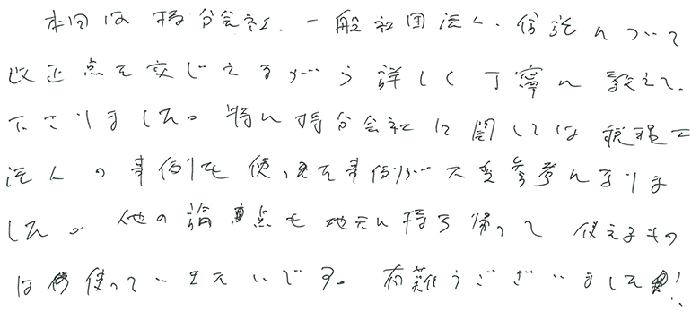 本日は持分会社、一般社団法人、信託について
改正点を交じえながら詳しく丁寧に教えて
下さりました。特に持分会社に関しては税理士
法人の事例も使った事例が大変参考になりま
した。他の論点も地元に持ち帰って使えるもの
は使っていきたいです。有難うございました!!